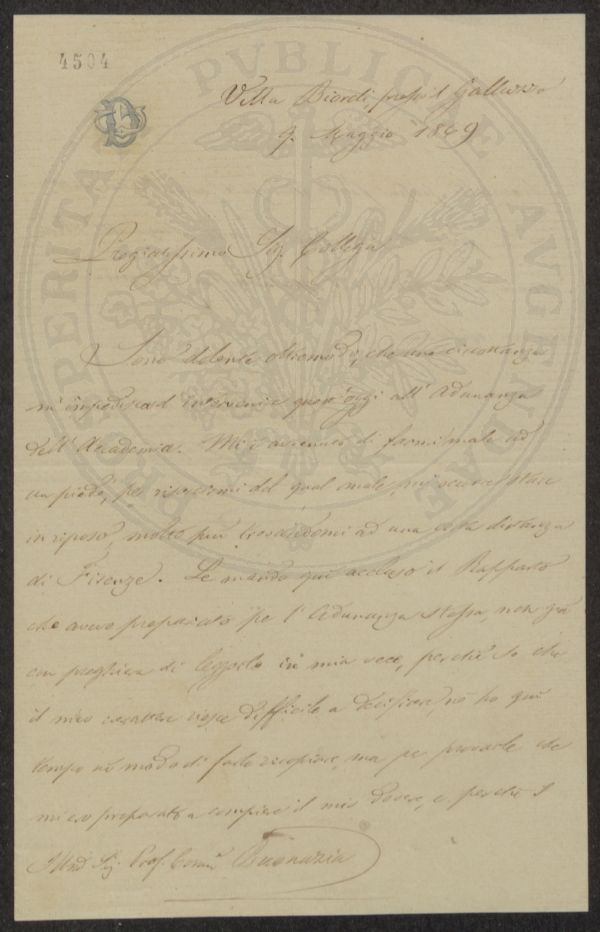 4504
PROSPERITATI PVBLICAE AVGENDAE
Villa presso il Galluzzo
9. Maggio 1849
Pregiatissimo Sig. Collega
Sono dolente oltremodo, che una circostanza
m'impedisca d'intervenire quest'oggi all'Adunanza
dell'Accademia. Mi è avvenuto di farmi male ad
un piede, per riavermi del qual male, mi occorre stare
in riposo, molto più trovandomi ad una certa distanza
di Firenze. Le mando quì accluso il Rapporto
che avevo preparato per l'Adunanza stessa, non già
con preghiera di leggerlo in mia vece, perchè so che
il mio carattere riesce difficile a decifrare, nè ho quì
tempo nè modo di farlo ricopiare, ma per provarle che
mi ero preparato a compiere il mio dovere, e perchè
Sig. Prof.